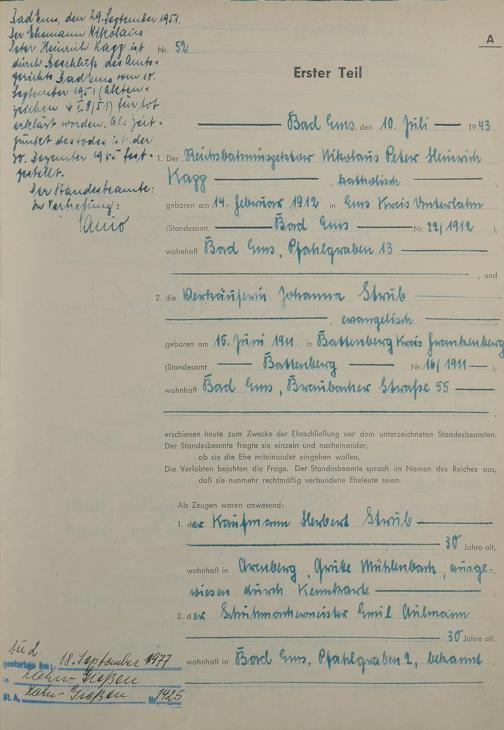 Bad Ems, den 29. September 1951.
Der Ehemann Nikolaus
Peter Heinrich Kagg ist
durch Beschluß des Amts-
gerichts Bad Ems vom 10.
September 1951 (Akten-
zeichen 4 II 8/51) für tot
erklärt worden. Als Zeit-
punkt des Todes ist der
30. Dezember 1945 fest-
gestellt.
Der Standesbeamte:
In Vertretung:
A
Nr. 52
Erster Teil
Bad Ems, den 10. Juli 1943
1. Der Reichsbahninspektor Nikolaus Peter Heinrich
Kagg, katholisch
geboren am 14. Februar 1912 in Ems Kreis Unterlahn
(Standesamt Bad Ems Nr. 22/1912),
wohnhaft Bad Ems, Pfahlgraben 13
, und
2. die Verkäuferin Johanna Strub
, evangelisch
geboren am 15. Juni 1911 in Battenberg Kreis Frankenberg
(Standesamt Battenberg Nr. 16/1911),
wohnhaft Bad Ems, Braubacher Straße 55
erschienen heute zum Zwecke der Eheschließung vor dem unterzeichneten Standesbeamten.
Der Standesbeamte fragte sie einzeln und nacheinander,
ob sie die Ehe miteinander eingehen wollen.
Die Verlobten bejahten die Frage. Der Standesbeamte sprach im Namen des Reiches aus,
daß sie nunmehr rechtmäßig verbundene Eheleute seien.
Als Zeugen waren anwesend:
1. der Kaufmann Herbert Strub
30 Jahre alt,
wohnhaft in Arenberg, Grube Mühlenbach, ausge-
wiesen durch Kennkarte
2. der Schuhmachermeister Emil Aulmann
30 Jahre alt,
wohnhaft in Bad Ems, Pfahlgraben 2, bekannt
zu 2.
gestorben am: 18. September 1977
in Katzenelnbogen
St. A. Katzenelnbogen Nr. 1425